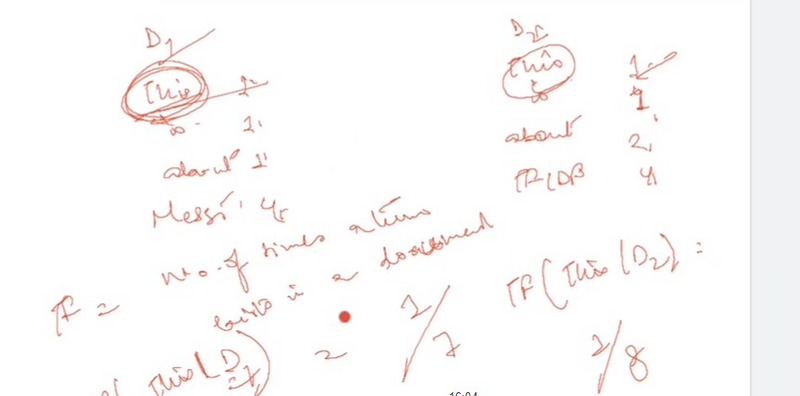 D1
This 1
is 1
about 1
Messi 4
D2
This 1
is 1
about 2
TFIDF 4
TF = No. of times a term
exists in a document
This | D1) = 1/7
TF (This | D2) =
1/8